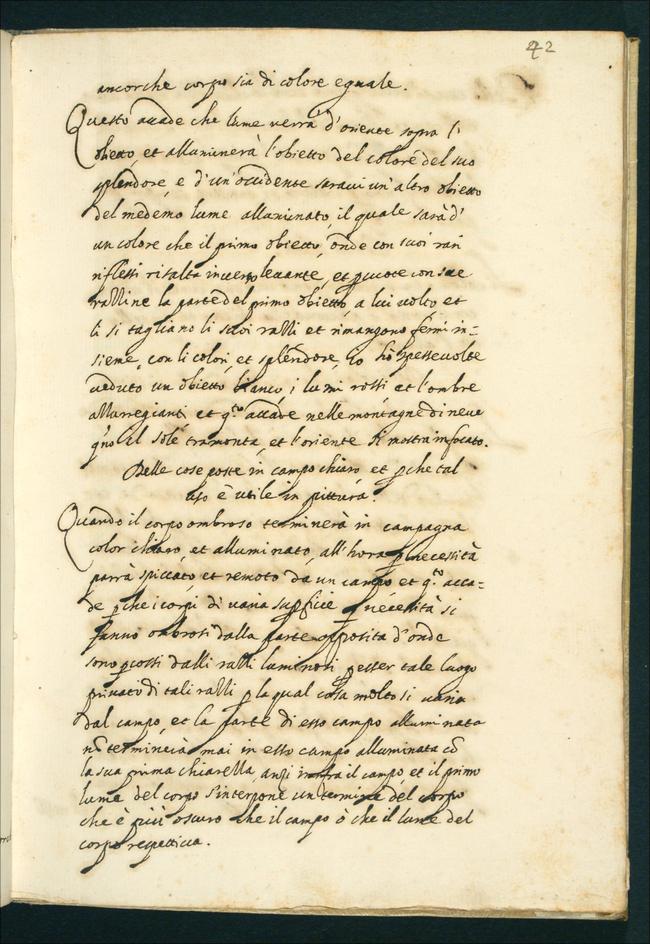 42
ancorche corpo sia di colore eguale.
Questo accade che lume verrà d'oriente sopra l'
obietto, et alluminerà l'obietto del colore del suo
splendore, e d'un'occidente saravi un'altro obietto
del medemo lume alluminato, il quale sarà d'
un colore che il primo obietto, onde con suoi rari
riflessi risalta inverso levante, et pcuote con sue
ralline la parte del primo obietto, a lui volto et
li si tagliano li suoi ralli et rimangono fermi in=
sieme, con li colori, et splendore, io hò spesse volte
veduto un obietto bianco, i lumi rossi et l'ombre
allurregianti et q.to accade nelle montagne di neve
q'no il sole tramonta, et l'oriente si mostra infocato.
Delle cose poste in campo chiaro et pche tal
uso è utile in pittura.
Quando il corpo ombroso terminerà in campagna
color chiaro, et alluminato, all'hora p necessità
parrà spiccato, et remoto da un campo et q.to acca=
de pche i corpi di varia supficie p necessità si
fanno ombrosi dalla parte opposita d'onde
sono pcossi dalli ralli luminosi p esser tale luogo
privato di tali ralli p la qual cosa molto si varia
dal campo, et la parte di esso campo alluminata
nō terminerà mai in esso campo alluminata cō
la sua prima chiarella, anzi infra il campo, et il primo
lume del corpo s'interpone un termine del corpo
che è più oscuro che il campo ò che il lume del
corpo respettivo.